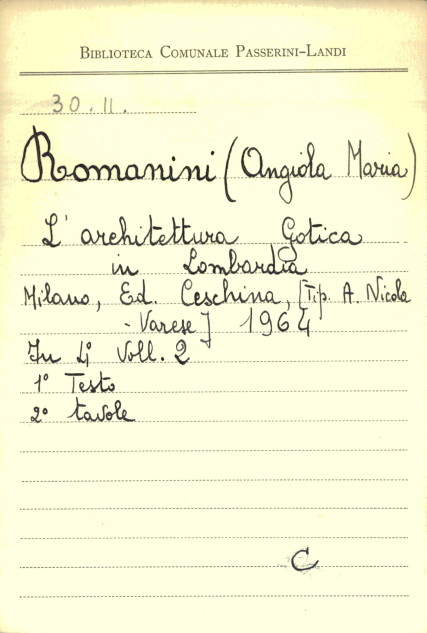 BIBLIOTECA COMUNALE PASSERINI-LANDI
30.11.
Romanini (Angiola Maria)
L'architettura Gotica
in Lombardia
Milano, Ed. Ceschina, [Tip. A. Nicola
- Varese] 1964
In 4° Voll. 2
1° Testo
2° tavole
C